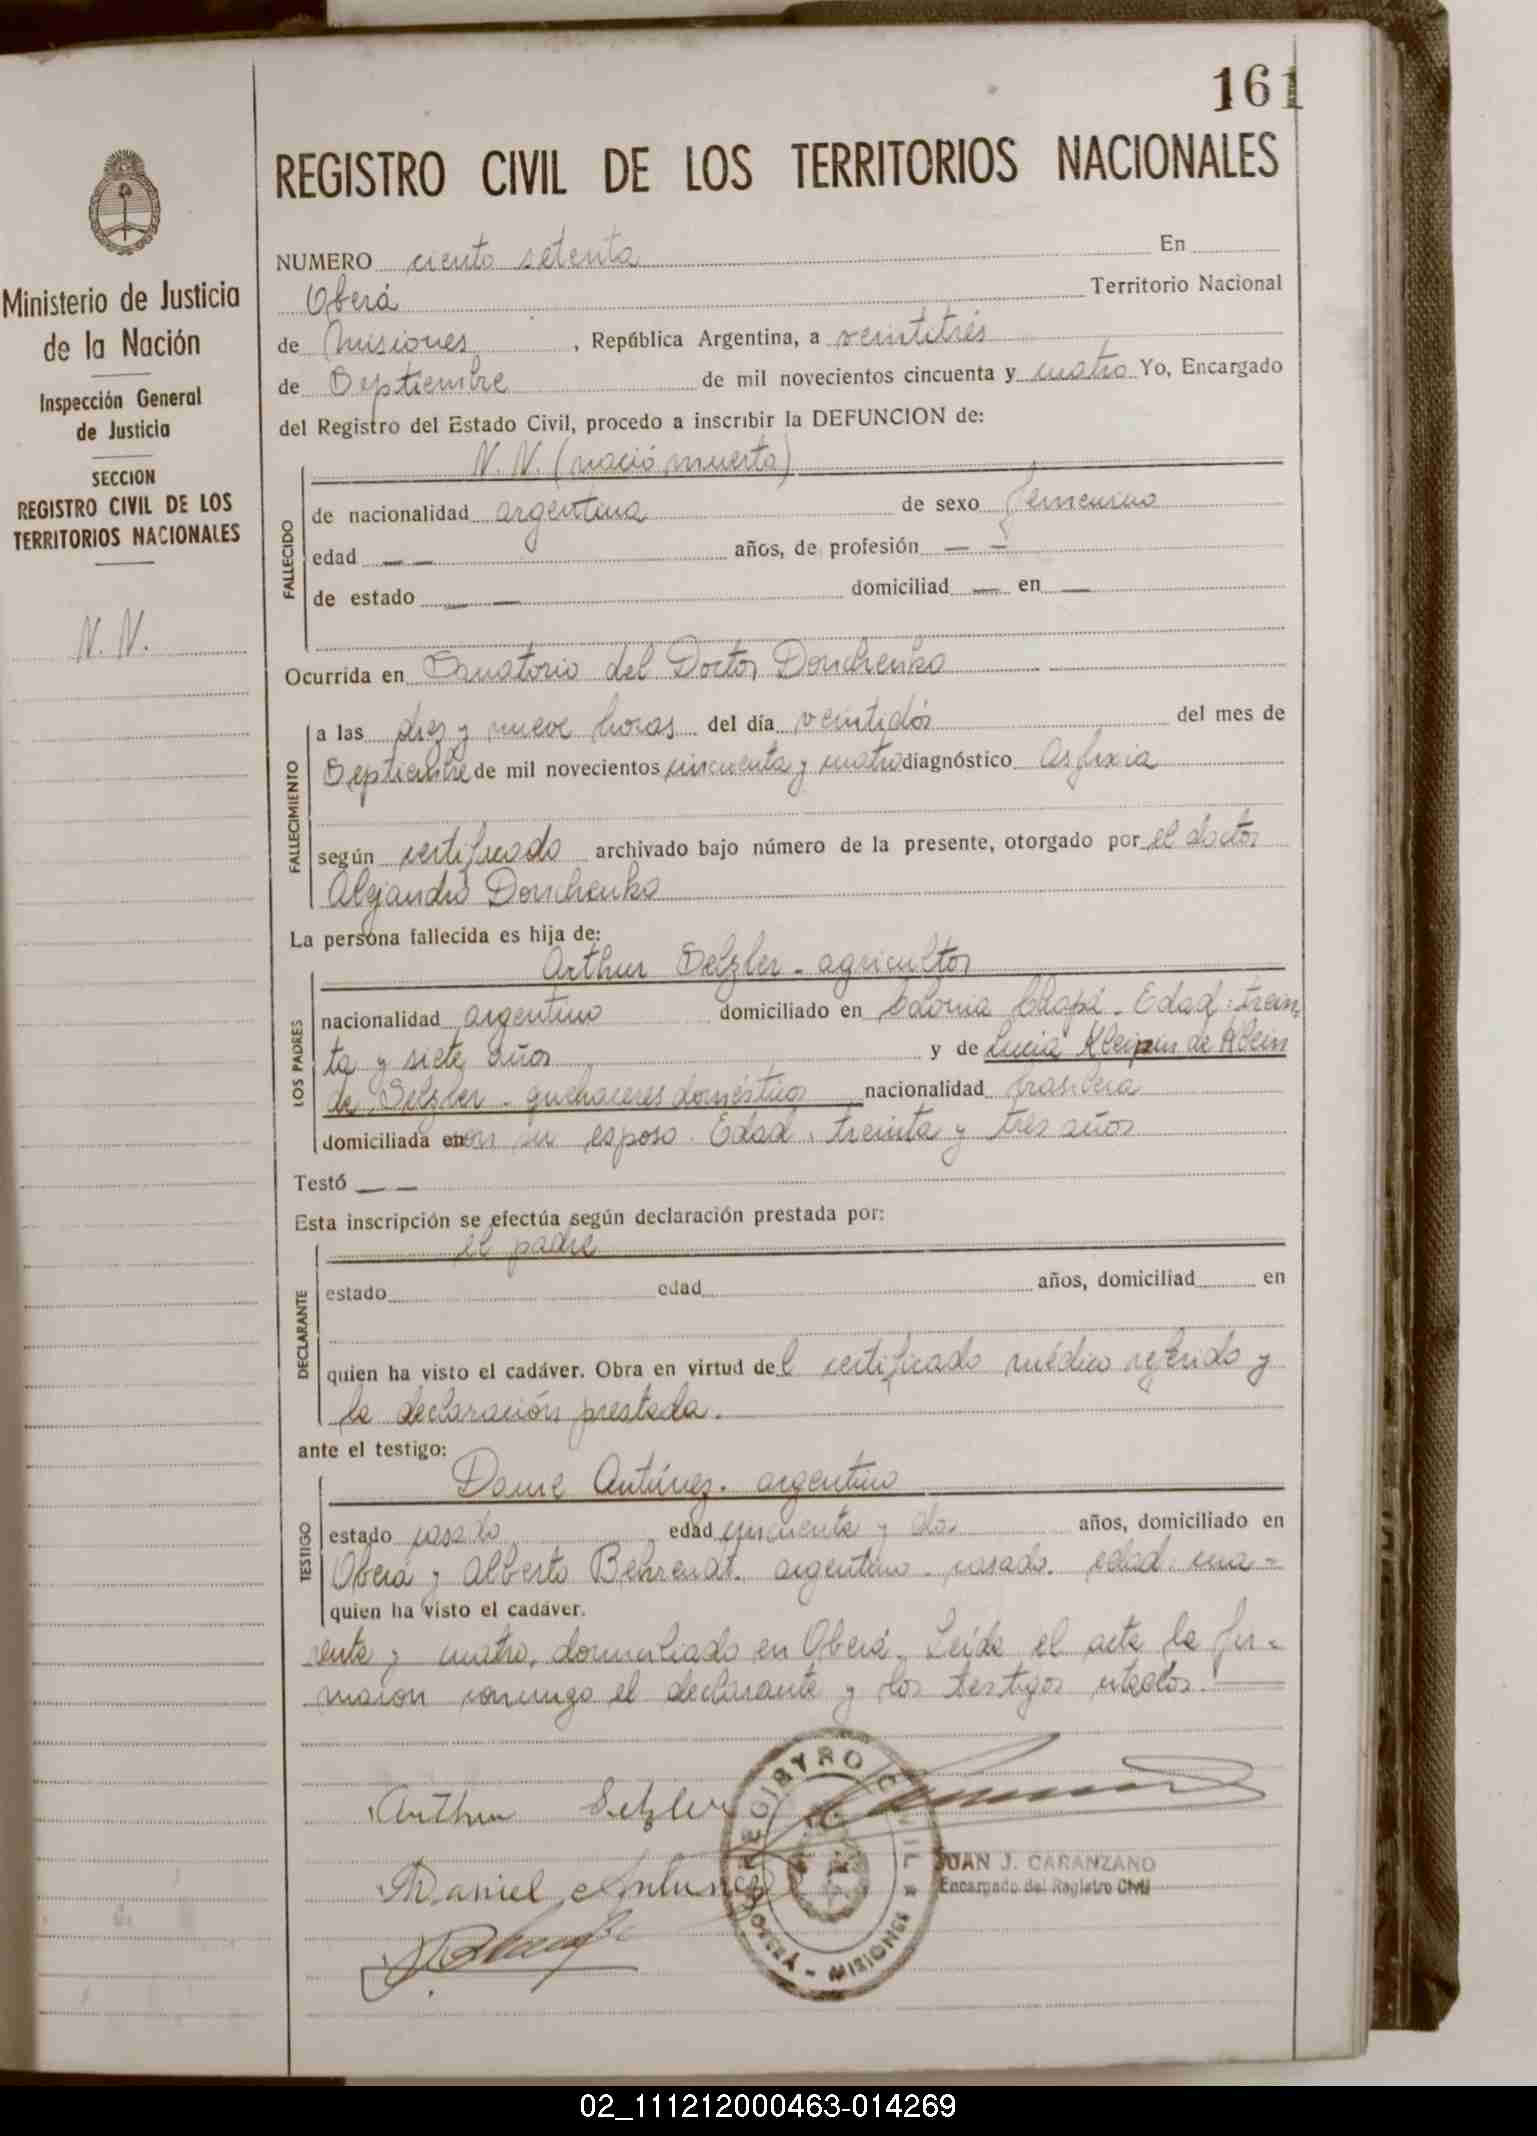 161
REGISTRO CIVIL DE LOS TERRITORIOS NACIONALES
Ministerio de Justicia
de la Nación
Inspección General
de Justicia
SECCION
REGISTRO CIVIL DE LOS
TERRITORIOS NACIONALES
N. N.
NUMERO ciento setenta En
Oberá Territorio Nacional
de Misiones, República Argentina, a veintitrés
de Septiembre de mil novecientos cincuenta y cuatro Yo, Encargado
del Registro del Estado Civil, procedo a inscribir la DEFUNCION de:
N. N. (nació muerta)
FALLECIDO
de nacionalidad argentina de sexo femenino
edad — — años, de profesión — —
de estado — — domiciliad — en —
Ocurrida en Sanatorio del Doctor Donchenko
FALLECIMIENTO
a las diez y nueve horas del día veintidós del mes de
Septiembre de mil novecientos cincuenta y cuatro diagnóstico Asfixia
según certificado archivado bajo número de la presente, otorgado por el doctor
Alejandro Donchenko
La persona fallecida es hija de:
LOS PADRES
Arthur Selzler - agricultor
nacionalidad argentino domiciliado en Colonia Chapá - Edad: trein-
ta y siete años y de Lucia de Klein
de Selzler - quehaceres domésticos nacionalidad brasilera
domiciliada en con su esposo. Edad: treinta y tres años
Testó — —
Esta inscripción se efectúa según declaración prestada por:
DECLARANTE
el padre
estado edad años, domiciliad en
quien ha visto el cadáver. Obra en virtud del certificado médico referido y
la declaración prestada.
ante el testigo:
TESTIGO
Antúnez. argentino
estado casado edad cincuenta y dos años, domiciliado en
Oberá y Alberto Behrendt. argentino - casado. edad: cua-
quien ha visto el cadáver.
renta y cuatro, domiciliado en Oberá. Leída el acta la fir-
maron conmigo el declarante y los testigos citados.
Arthur Selzler
Daniel Antunez
REGISTRO CIVIL
OBERÁ - MISIONES
JUAN J. CARANZANO
Encargado del Registro Civil
02_111212000463-014269